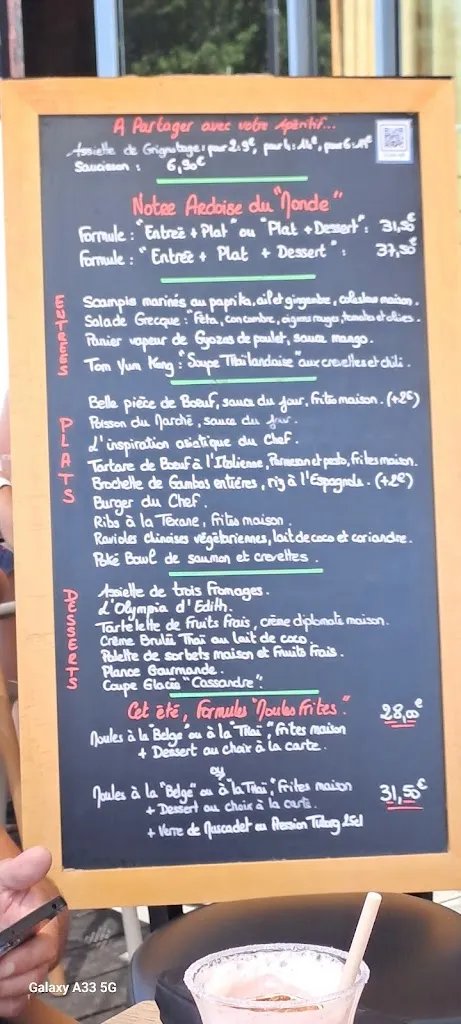 A Partager avec votre Apéritif...
Assiette de Grignotage : pour 2 : 9€, pour 4 : 14€, pour 6 : 19€
Saucisson : 6,90€
Notre Ardoise du "Monde"
Formule : "Entrée + Plat" ou "Plat + Dessert" : 31,50€
Formule : "Entrée + Plat + Dessert" : 37,50€
ENTRÉES
Scampis marinés au paprika, ail et gingembre, coleslaw maison.
Salade Grecque : "Feta, concombre, oignons rouges, tomates et olives.
Panier vapeur de Gyozas de poulet, sauce mango.
Tom Yum Kong : "Soupe Thaïlandaise" aux crevettes et chili.
PLATS
Belle pièce de Boeuf, sauce du jour, frites maison. (+2€)
Poisson du Marché, sauce du jour.
L'inspiration asiatique du Chef.
Tartare de Boeuf à l'Italienne, Parmesan et pesto, frites maison.
Brochette de Gambas entières, riz à l'Espagnole. (+2€)
Burger du Chef.
Ribs à la Texane, frites maison.
Ravioles chinoises végétariennes, lait de coco et coriandre.
Poké Bowl de saumon et crevettes.
DESSERTS
Assiette de trois fromages.
L'Olympia d'Edith.
Tartelette de Fruits Frais, crème diplomate maison.
Crème Brulée Thaï au lait de coco.
Palette de sorbets maison et Fruits Frais.
Plance Gourmande.
Coupe Glacée "Cassandre".
Cet été, Formules "Moules Frites"
Moules à la "Belge" ou à la "Thaï", Frites maison 28,00€
+ Dessert au choix à la carte.
ou
Moules à la "Belge" ou à la "Thaï", Frites maison 31,50€
+ Dessert au choix à la carte.
+ Verre de Muscadet ou Pression 25cl
Galaxy A33 5G